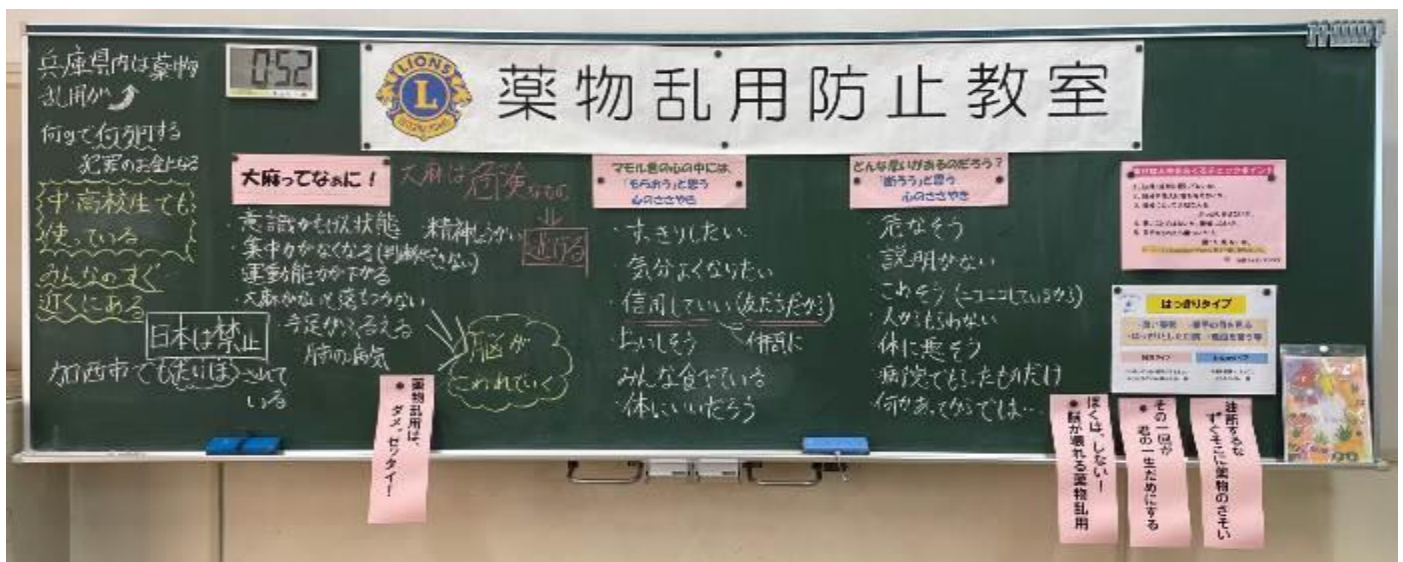 兵庫県内は薬物
乱用が
何gで何万円する
犯罪のお金になる
中高校生でも
使っている
みんなのすぐ
近くにある
日本は禁止
加西市でもたいほされて
いる
0:52
LIONS
L
薬物乱用防止教室
大麻ってなぁに！
大麻は危険なもの
逃げる
・意識がもうろう状態
・集中力がなくなる(判断ができない)
・運動能力が下がる
・大麻がないと落ちつかない
手足がふるえる
肺の病気
脳が
こわれていく
薬物乱用は、
ダメ。ゼッタイ！
マモル君の心の中には、
「もらおう」と思う
心のささやき
・すっきりしたい
・気分よくなりたい
・信用していい(友だちだから)
仲間に
・おいしそう
・みんな食べている
・体にいいだろう
どんな思いがあるのだろう？
「断ろう」と思う
心のささやき
・危なそう
・説明がない
・こわそう(ニコニコしているから)
・人からもらわない
・体に悪そう
・病院でもらったものだけ
・何かあってからでは…
はっきりタイプ
ぼくは、しない！
脳が壊れる薬物乱用
その一回が
君の一生だめにする
油断するな
すぐそこに薬物のさそい